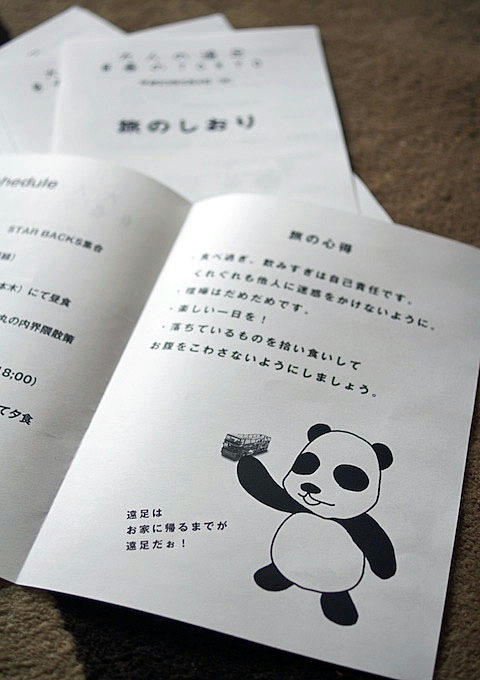 旅のしおり
hedule
STAR BACKS集合
にて昼食
丸の内界隈散策
8;00)
て夕食
旅の心得
・食べ過ぎ、飲みすぎは自己責任です。
くれぐれも他人に迷惑をかけないように。
・喧嘩はだめだめです。
・楽しい一日を！
・落ちているものを拾い食いして
お腹をこわさないようにしましょう。
遠足は
お家に帰るまでが
遠足だぉ！